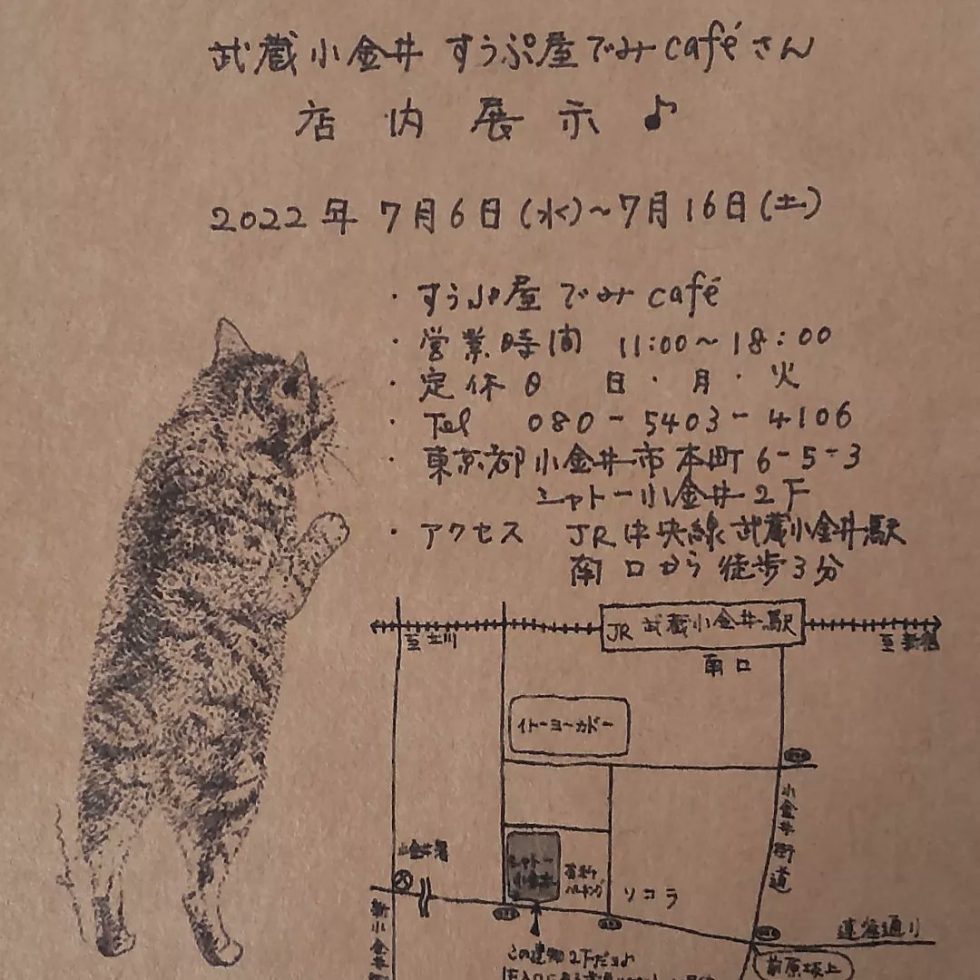 武蔵小金井 すうぷ屋でみcaféさん
店内展示♪
2022年 7月6日(水)~7月16日(土)
・すうぷ屋でみcafé
・営業時間 11:00~18:00
・定休日 日・月・火
・Tel 080-5403-4106
・東京都小金井市本町6-5-3
シャトー小金井2F
・アクセス JR中央線武蔵小金井駅
南口から徒歩3分
JR 武蔵小金井駅
至立川
至新宿
南口
イトーヨーカドー
小金井街道
シャトー
小金井
ソコラ
連雀通り
前原坂上
新小金井
この建物2Fだよ♪